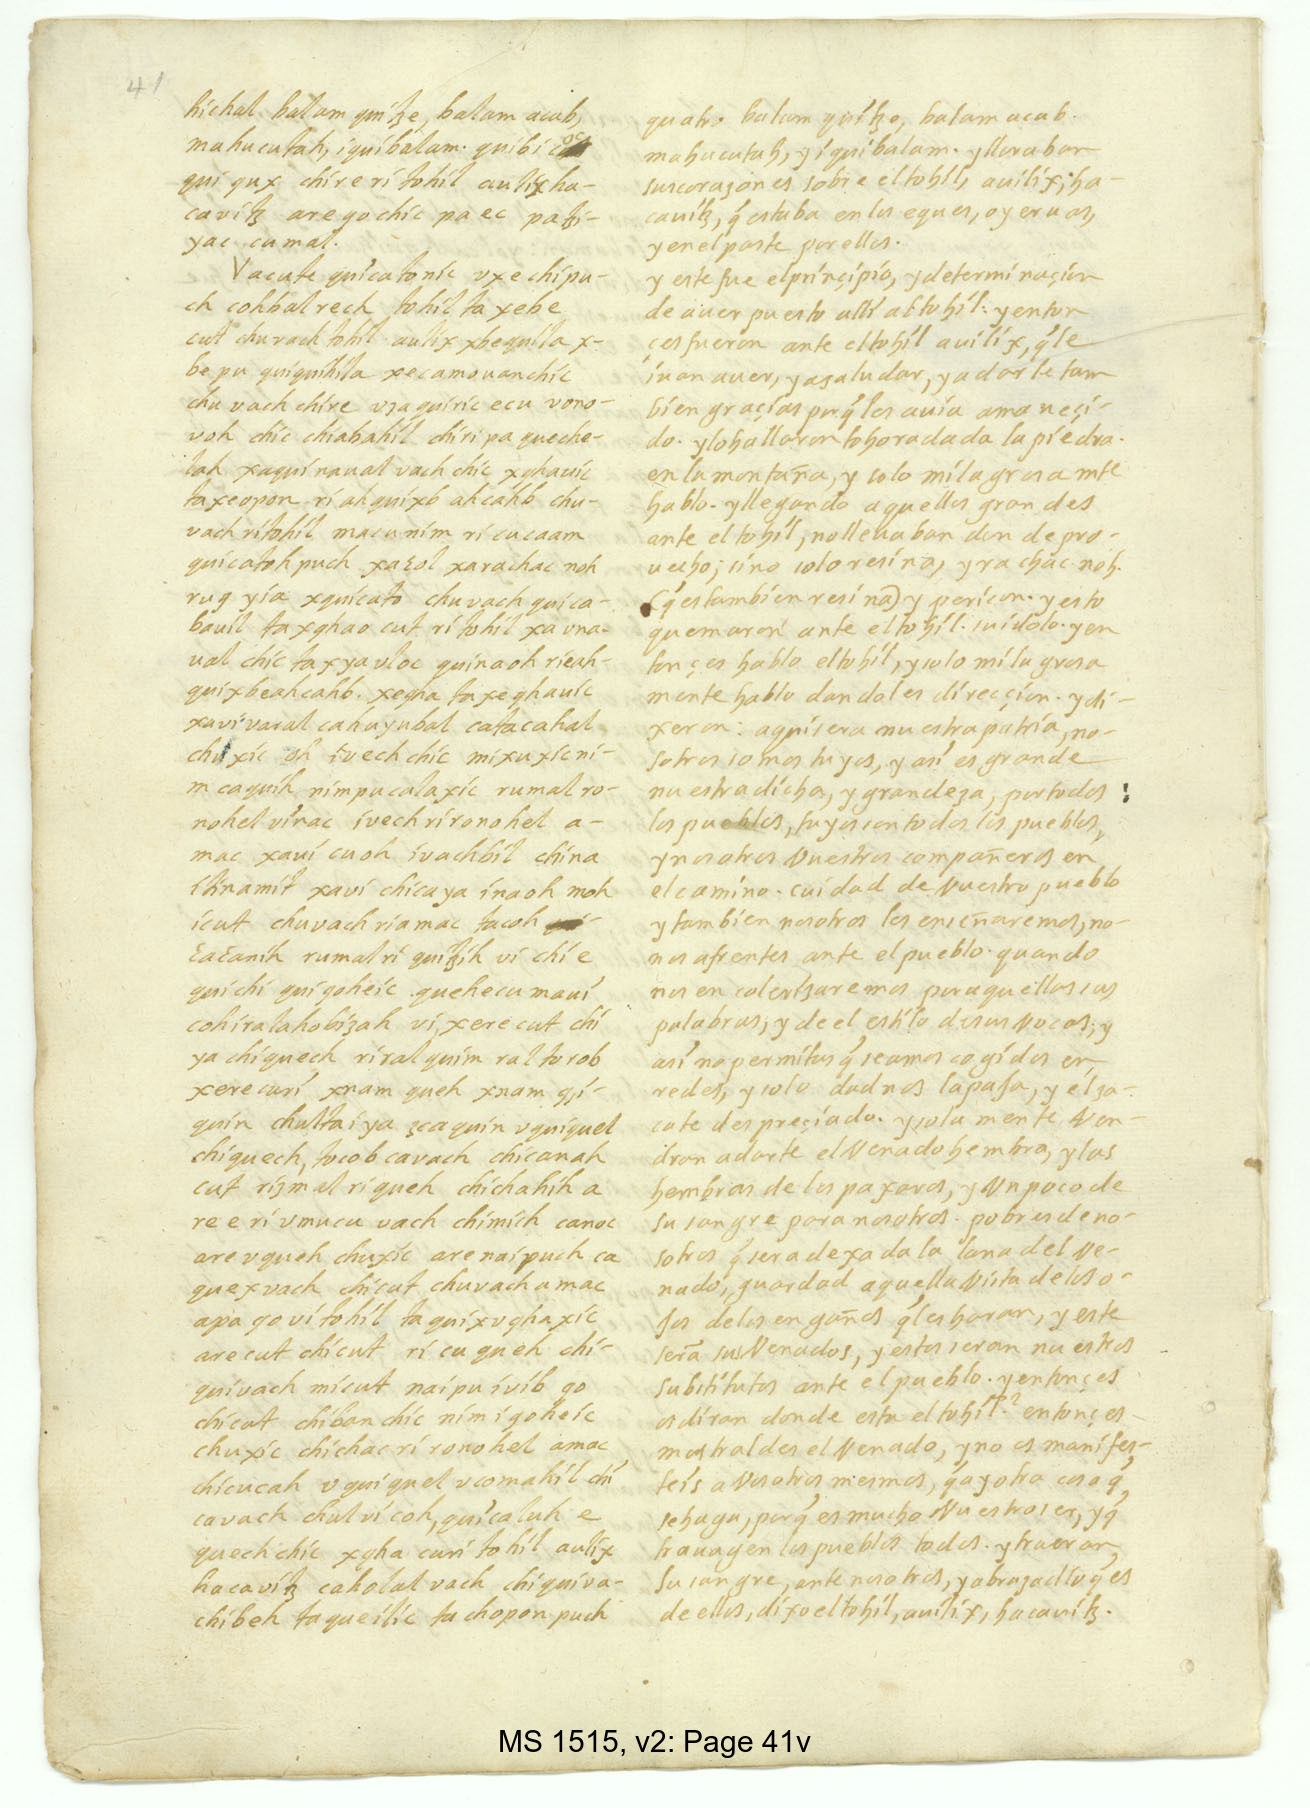 41
hichal balam quitze, balam acab,
mahucutah, iquibalam. quibi oc
qui qux chire ri tohil auilix ha-
cavitz are go chic pa ec pa tzi-
yac cumal.
Vacute quicatonic vxe chi pu-
ch cohbal rech tohil ta xebe
cut chuvach tohil auilix xbequila x-
be pu quiquihila xecamouanchic
chu vach chire vzaquiric ecu vono-
voh chic chi abahil chiri pa queche-
lah xaqui naual vach chic xghauic
ta xeopon ri ahquixb ahcahb chu-
vach ri tohil macu nim ri cucaam
quicatoh puch xa col xa rachac noh
rug yia xquicato chuvach quica-
bauil ta xghao cut ri tohil xa vna-
ual chic ta xyauloc quinaoh rieah-
quixb eahcahb. xegha ta xeghauic
xavi varal cahuyubal catacahal
chuxic oh ivech chic mixuxic ni-
m caquih nim pu calaxic rumal ro-
nohel vinac ivech ri ronohel a-
mac xaui cu oh ivachbil china
itinamit xavi chicaya inaoh moh
icut chuvach ri amac ta coh
cacanik rumal ri quitzih vi chi e
quichi quigoheic quehecu maui
cohiralahobizah vi, xere cut chi
ya chiquech ri ral quim ral torob
xere curi xnam queh xnam tzi-
quin chultaiya zcaquin vquiquel
chiquech, tocob cavach chicanah
cut rizmal ri queh chichahih a
re e ri vmucu vach chimich canoc
are vqueh chuxic are naipuch ca
quexvach chicut chuvach amac
apa go vi tohil ta quixvghaxic
arecut chicut ri cu queh chi-
quivach micut naipu ivib go
chicut chiban chic nim igoheic
chuxic chichac ri ronohel amac
chicucah vquiquel vcomahil chi
cavach chul vi coh, quicaluh e
quech chic xgha curi tohil auilix
hacavitz caholal vach chiquiva-
chibeh ta queilic ta chopon puch
quatro balam quitze, balam acab.
mahucutah, y iquibalam. y lloraban
sus corazones sobre el tohil, auilix, ha-
cauitz, q̃ estaba en los eques, o yeruas,
y en el paste por ellos.
y este fue el prinçipio, y determinaçion
de auer puesto alli al tohil: y enton
çes fueron ante el tohil auilix, q̃ le
iuan a uer, y a saludar, y a darle tam
bien graçias porq̃ les auia amaneçi-
do. y lo hallaron tohoradada la piedra.
en la montaña, y solo milagrosa mte
hablo. y llegando aquellos grandes
ante el tohil, no lleuaban don de pro-
uecho; sino solo resina, y rachac noh.
(q̃ es tambien resina) y pericon. y esto
quemaron ante el tohil. su idolo. y en
tonçes hablo el tohil, y solo milagrosa
mente hablo dandoles direcçion. y di-
xeron: aqui sera nuestra patria, no-
sotros somos tuyos, y asi es grande
nuestra dicha, y grandeza, por todos
los pueblos, tuyos son todos los pueblos,
y nosotros Vuestros compañeros en
el camino. cuidad de Vuestro pueblo
y tambien nosotros les enseñaremos, no-
nos afrentes ante el pueblo. quando
nos encolerizaremos por aquellas sus
palabras, y de el estilo de sus Vocas; y
asi no permitas q̃ seamos cogidos en
redes, y solo dadnos la paja, y el za-
cate despreçiado. y solamente Ven-
dran a darte el Venado hembra, y las
hembras de los paxaros, y Vn poco de
su sangre para nosotros. pobres de no-
sotros q̃ sera dexada la lana del Ve-
nado, guardad aquella Vista de los o-
jos de los engaños q̃ les haran, y este
sera sus Venados, y estos seran nuestros
substitutos ante el pueblo. y entonçes
os diran donde esta el tohil? entonçes-
mostraldes el Venado, y no os manifes-
teis a Vosotros mesmos, q̃ ay otra cosa q̃
se haga, porq̃ es mucho Vuestro ser, y q̃
trauagen los pueblos todos. y traeran
su sangre, ante nosotros, y abrazadlo q̃ es
de ellos, dixo el tohil, auilix, hacauitz.
MS 1515, v2: Page 41v